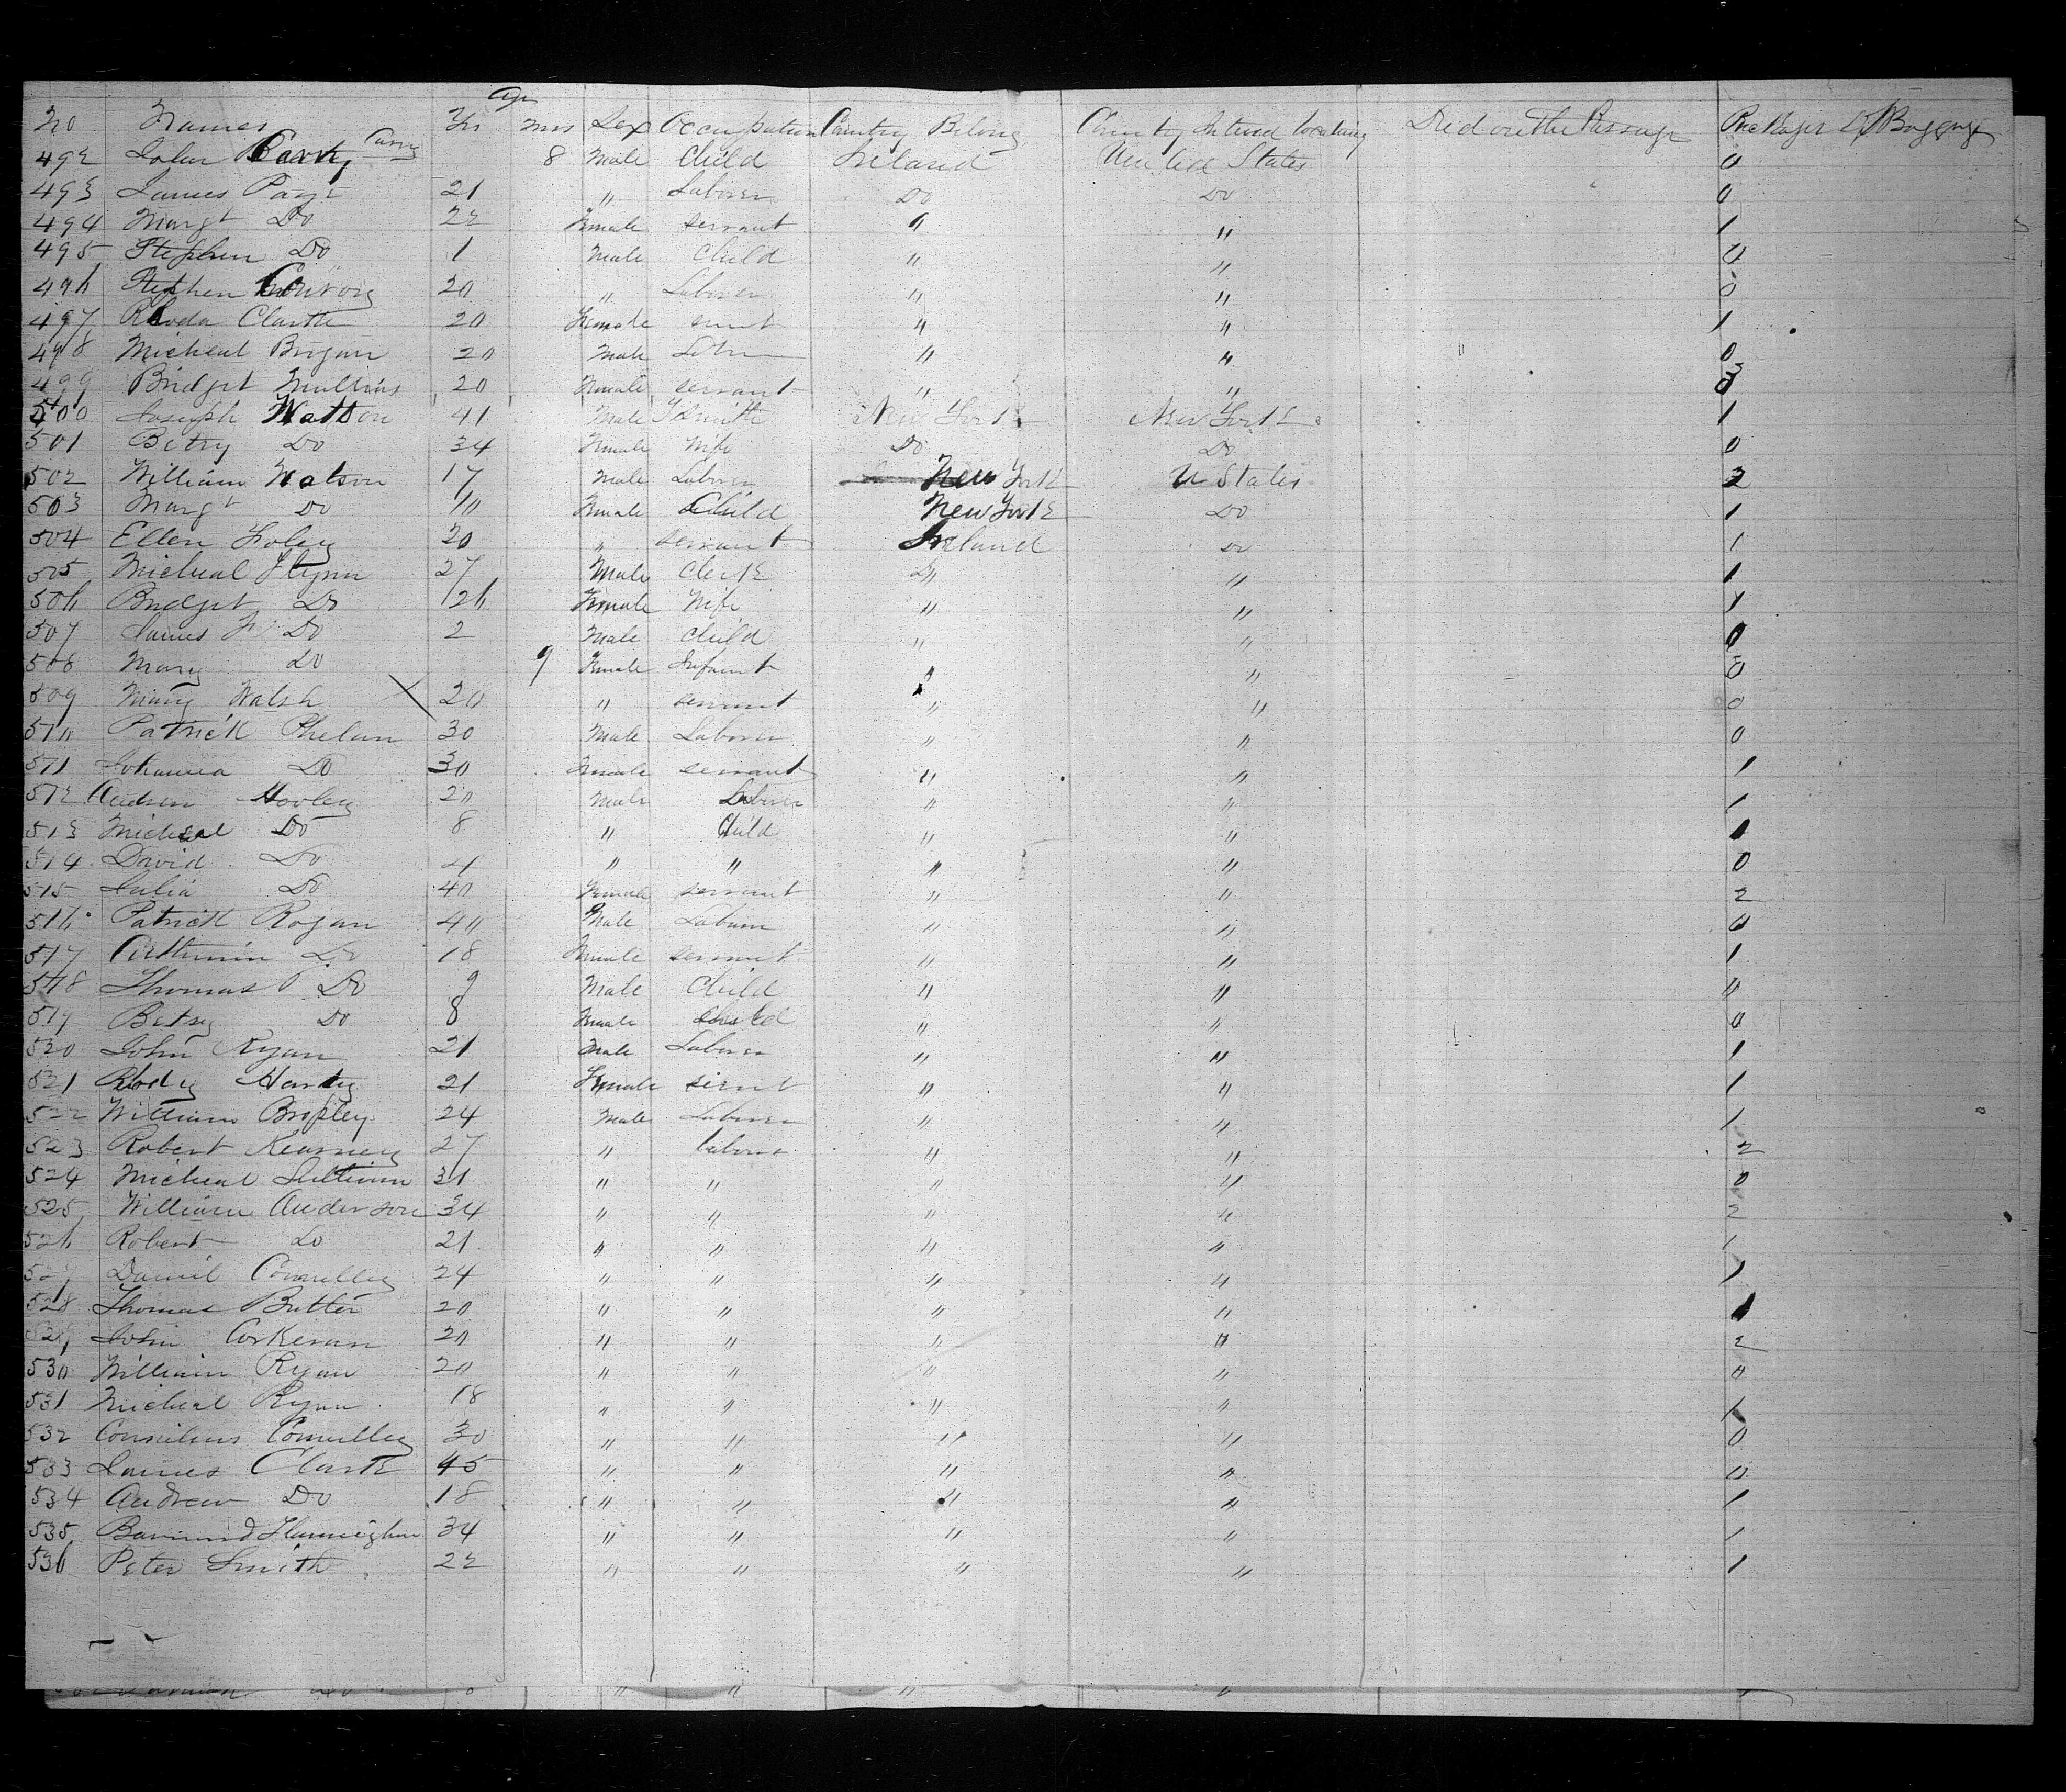 Age
No Names Yrs Mns Sex Occupation Country Belong Country Intend locating Died on the Passage Packages of Baggage
Carty
492 John Carty 8 Male Child Ireland United States 0
493 James Page 21 " Laborer Do Do 0
494 Margt Do 22 Female servant " " 1
495 Stephen Do 1 Male Child " " 0
496 Stephen 20 " Laborer " " 0
497 Rhoda Clark 20 Female servt " " 1
498 Micheal Brigan 20 Male Labr " " 0
499 Bridget Mullins 20 Female servant " "
500 Joseph Watson 41 Male Tsmith New York New York 1
501 Betsy Do 34 Female Wife Do Do 0
502 William Watson 17 Male Laborer New York U States 2
503 Margt Do 10 Female Child New York Do 1
504 Ellen Foley 20 " servant Ireland Do 1
505 Micheal Flynn 27 Male Clerk Do " 1
506 Bridget Do 26 Female Wife " " 1
507 James Do 2 Male Child " " 0
508 Mary Do 9 Female Infant " " 0
509 Mary Walsh 20 " servant " " 0
510 Patrick Phelan 30 Male Laborer " " 0
511 Johanna Do 30 Female servant " " 1
512 Hooley 20 Male Laborer " " 1
513 Micheal Do 8 " Child " " 1
514 David Do 4 " " " " 0
515 Julia Do 40 Female servant " " 2
516 Patrick Rogan 40 Male Laborer " " 0
517 Do 18 Female servant " " 1
518 Thomas Do 9 Male Child " " 0
519 Betsy Do 8 Female Child " " 0
520 John Ryan 21 Male Laborer " " 1
521 Hartey 21 Female servt " " 1
522 William Bropley 24 Male Laborer " " 1
523 Robert Kearney 27 " laborer " " 2
524 Micheal Sullivan 31 " " " " 0
525 William Anderson 34 " " " " 2
526 Robert Do 21 " " " " 1
527 Daniel Connelley 24 " " " " 1
528 Thomas Butler 20 " " " " 1
529 John Corkeran 20 " " " " 2
530 William Ryan 20 " " " " 0
531 Micheal Ryan 18 " " " " 1
532 Cornilius Connelley 30 " " " " 0
533 James Clark 45 " " " " 0
534 Andrew Do 18 " " " " 1
535 Flannighan 34 " " " " 1
536 Peter Smith 22 " " " " 1